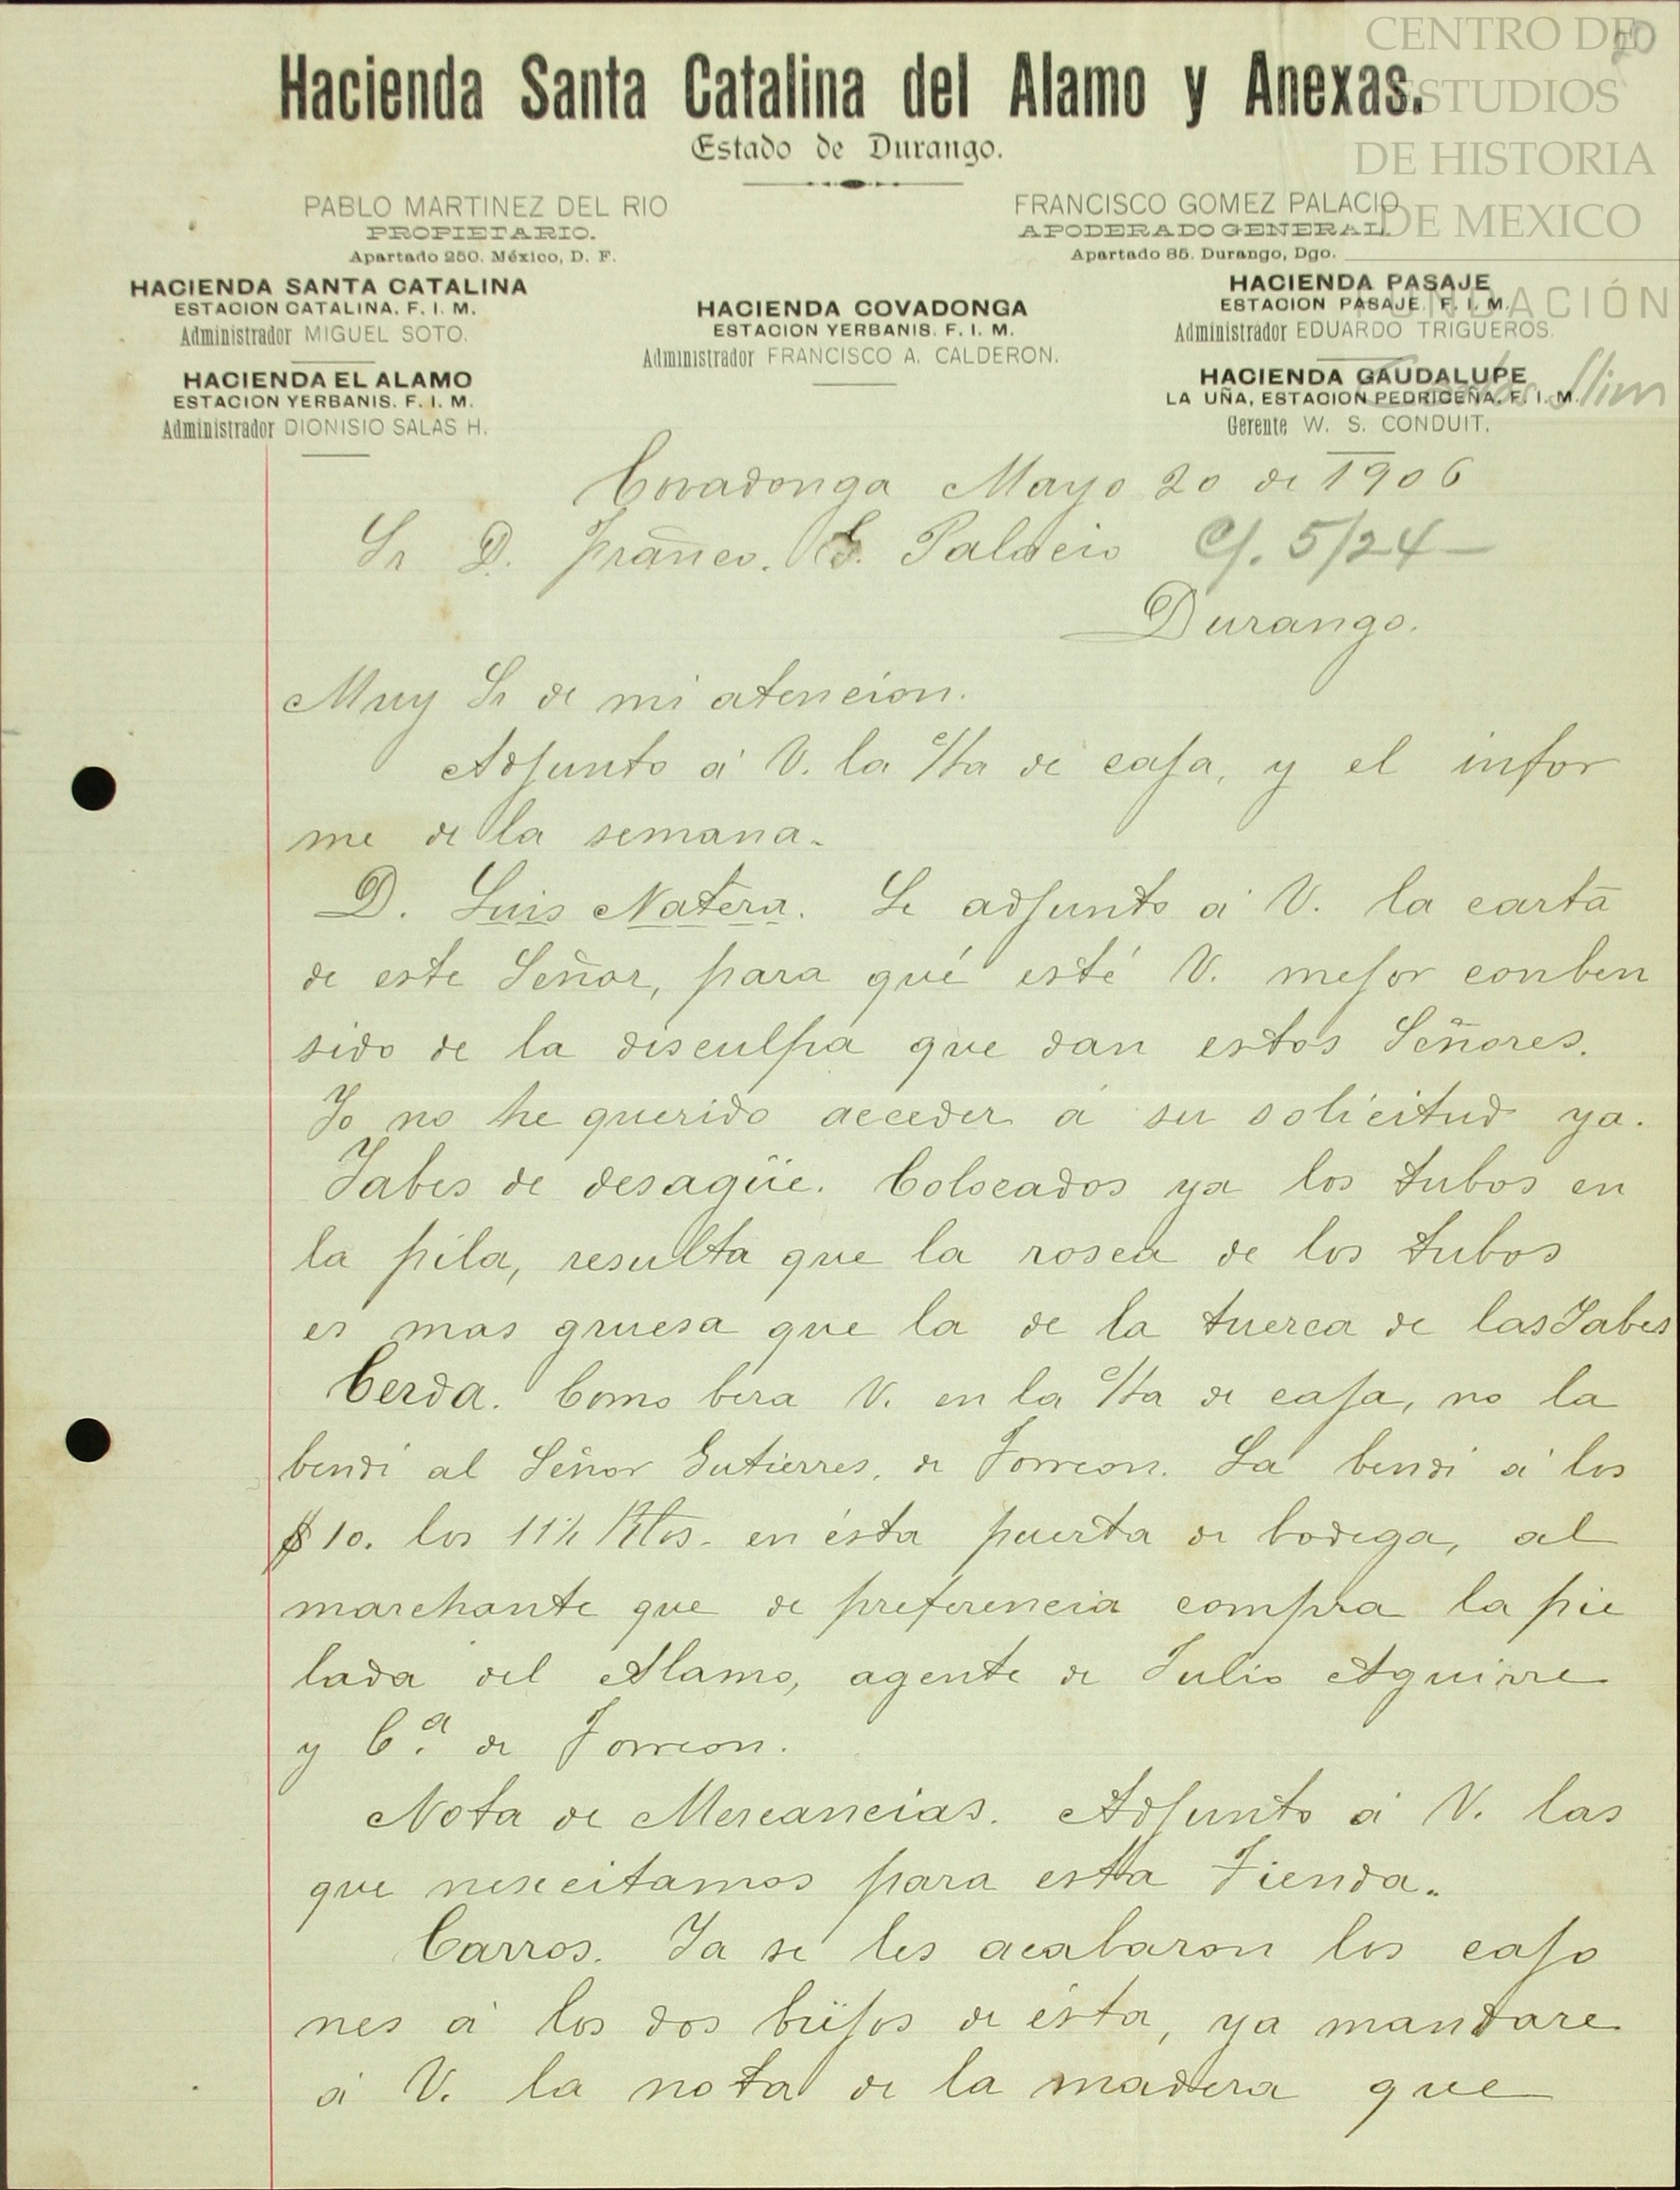 CENTRO DE
ESTUDIOS
DE HISTORIA
DE MEXICO
FUNDACIÓN
Carlos Slim
20
Hacienda Santa Catalina del Alamo y Anexas.
Estado de Durango.
PABLO MARTINEZ DEL RIO
PROPIETARIO.
Apartado 250. México, D. F.
FRANCISCO GOMEZ PALACIO
APODERADO GENERAL
Apartado 85. Durango, Dgo.
HACIENDA SANTA CATALINA
ESTACION CATALINA. F. I. M.
Administrador MIGUEL SOTO.
HACIENDA EL ALAMO
ESTACION YERBANIS. F. I. M.
Administrador DIONISIO SALAS H.
HACIENDA COVADONGA
ESTACION YERBANIS. F. I. M.
Administrador FRANCISCO A. CALDERON.
HACIENDA PASAJE
ESTACION PASAJE. F. I. M.
Administrador EDUARDO TRIGUEROS.
HACIENDA GAUDALUPE
LA UÑA, ESTACION PEDRICEÑA. F. I. M.
Gerente W. S. CONDUIT.
Covadonga Mayo 20 de 1906
Sr D. Franco. G. Palacio C/. 5/24—
Durango.
Muy Sr de mi atencion.
Adjunto á V. la c/ta de caja, y el infor
me de la semana.
D. Luis Natera. Le adjunto á V. la carta
de este Señor, para qué esté V. mejor conben
sido de la disculpa que dan estos Señores.
Yo no he querido acceder á su solicitud ya.
Yabes de desagüe. Colocados ya los tubos en
la pila, resulta que la rosca de los tubos
es mas gruesa que la de la tuerca de las Yabes
Cerda. Como bera V. en la c/ta de caja, no la
bendí al Señor Gutierres, de Torreon. La bendi á los
$10. los 11½ Klos. en ésta puerta de bodega, al
marchante que de preferencia compra la pie
lada del Alamo, agente de Julio Aguirre
y Cª. de Torreon.
Nota de Mercancias. Adjunto á V. las
que nescitamos para esta Tienda.
Carros. Ya se les acabaron los cajo
nes á los dos büjos de ésta, ya mandare
á V. la nota de la madera que